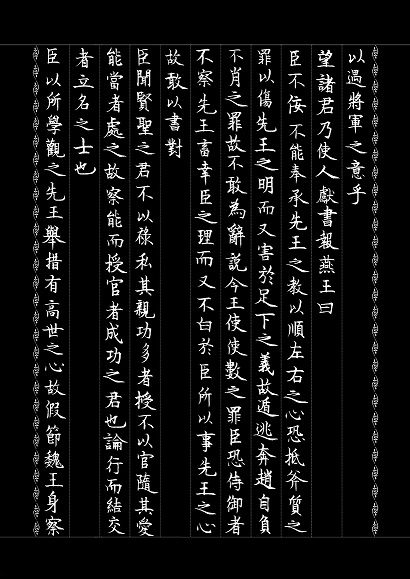 以遇將軍之意乎
望諸君乃使人獻書報燕王曰
臣不佞不能奉承先王之教以順左右之心恐抵斧質之
罪以傷先王之明而又害於足下之義故遁逃奔趙自負
不肖之罪故不敢為辭說今王使使數之罪臣恐侍御者
不察先王畜幸臣之理而又不白於臣所以事先王之心
故敢以書對
臣聞賢聖之君不以祿私其親功多者授不以官隨其愛
能當者處之故察能而授官者成功之君也論行而結交
者立名之士也
臣以所學觀之先王舉措有高世之心故假節魏王身察